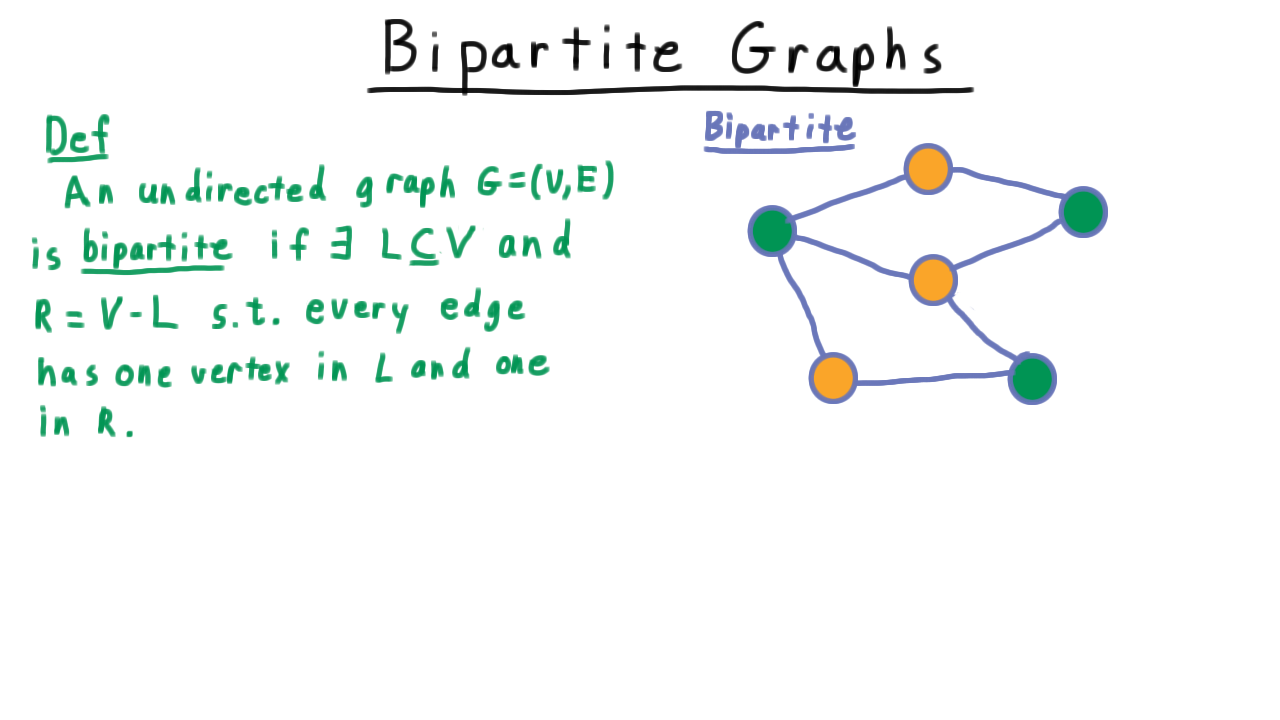 Bipartite Graphs
Def
An undirected graph G=(V,E)
is bipartite if ∃ L⊆V and
R = V-L s.t. every edge
has one vertex in L and one
in R.
Bipartite